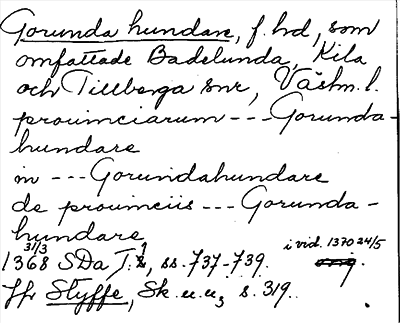 Gorunda hundare, f. hd, som
omfattade Badelunda, Kila
och Tillberga snr, Västm. l.
prouinciarum --- Gorunda-
hundare
in --- Gorundahundare
de prouinciis --- Gorunda-
hundare
31/3 1368 SDa J. 1, ss. 737-739. i vid. 1370 24/5
Jfr Styffe, Sk. u. u3 s. 319.